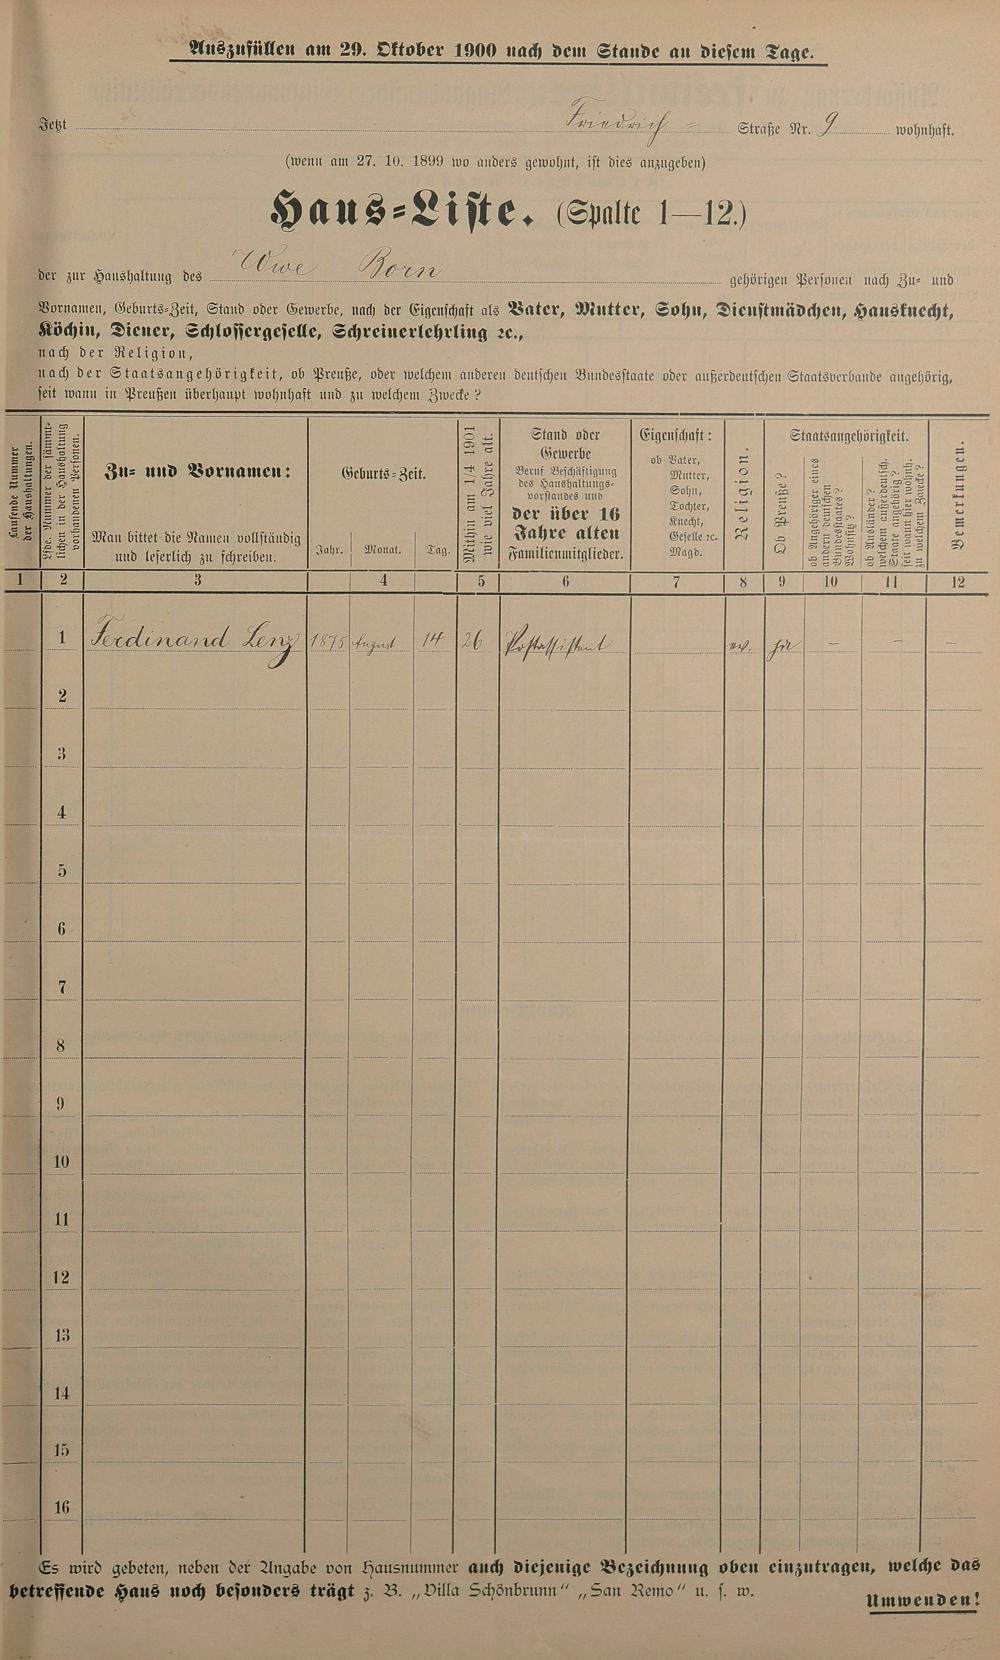 Auszufüllen am 29. Oktober 1900 nach dem Stande an diesem Tage.
Jetzt Friedrich- Straße Nr. 9 wohnhaft.
(wenn am 27. 10. 1899 wo anders gewohnt, ist dies anzugeben)
Haus=Liste. (Spalte 1—12.)
der zur Haushaltung des Wwe Born gehörigen Personen nach Zu= und
Vornamen, Geburts=Zeit, Stand oder Gewerbe, nach der Eigenschaft als Vater, Mutter, Sohn, Dienstmädchen, Hausknecht,
Köchin, Diener, Schlossergeselle, Schreinerlehrling ꝛc.,
nach der Religion,
nach der Staatsangehörigkeit, ob Preuße, oder welchem anderen deutschen Bundesstaate oder außerdeutschen Staatsverbande angehörig,
seit wann in Preußen überhaupt wohnhaft und zu welchem Zwecke?
Laufende Nummer
der Haushaltungen.
Lfde. Nummer der sämmt-
lichen in der Haushaltung
vorhandenen Personen.
Zu= und Vornamen:
Man bittet die Namen vollständig
und leserlich zu schreiben.
Geburts=Zeit.
Jahr. Monat. Tag.
Mithin am 1/4 1901
wie viel Jahre alt.
Stand oder
Gewerbe
Beruf Beschäftigung
des Haushaltungs-
vorstandes und
der über 16
Jahre alten
Familienmitglieder.
Eigenschaft:
ob Vater,
Mutter,
Sohn,
Tochter,
Knecht,
Geselle ꝛc.
Magd.
Religion.
Staatsangehörigkeit.
Ob Preuße?
ob Angehöriger eines
andern deutschen
Bundesstaates?
Wohnsitz?
ob Ausländer?
welchem außerdeutsch.
Staate angehörig?
seit wann hier wohnh.
zu welchem Zwecke?
Bemerkungen.
1 2 3 4 5 6 7 8 9 10 11 12
1 Ferdinand Lenz 1875 August 14 26 Postassistent ev. ja — —
2
3
4
5
6
7
8
9
10
11
12
13
14
15
16
Es wird gebeten, neben der Angabe von Hausnummer auch diejenige Bezeichnung oben einzutragen, welche das
betreffende Haus noch besonders trägt z. B. „Villa Schönbrunn“ „San Remo“ u. s. w.
Umwenden!